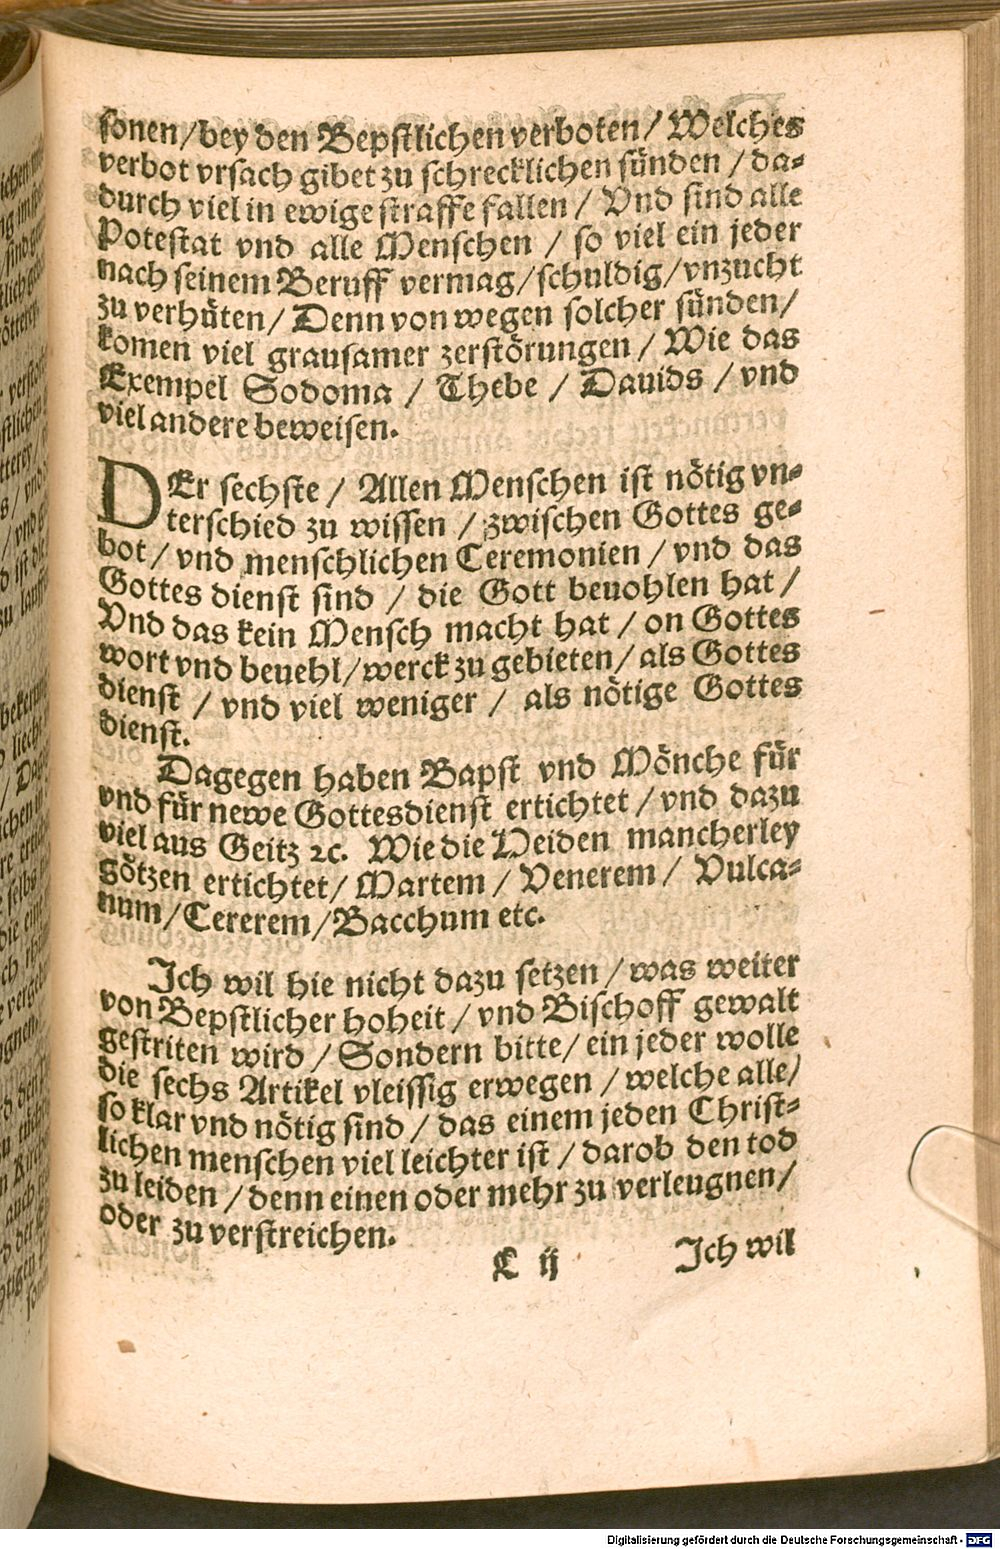 sonen/bey den Bepstlichen verboten/ Welches
verbot vrsach gibet zu schrecklichen sünden / da-
durch viel in ewige straffe fallen / Vnd sind alle
Potestat vnd alle Menschen / so viel ein jeder
nach seinem Beruff vermag/schuldig/vnzucht
zu verhüten/ Denn von wegen solcher sünden/
komen viel grausamer zerstörungen / Wie das
Exempel Sodoma / Thebe / Dauids / vnd
viel andere beweisen.
DEr sechste / Allen Menschen ist nötig vn-
terschied zu wissen / zwischen Gottes ge-
bot/ vnd menschlichen Ceremonien / vnd das
Gottes dienst sind / die Gott beuohlen hat /
Vnd das kein Mensch macht hat / on Gottes
wort vnd beuehl/werck zu gebieten/ als Gottes
dienst / vnd viel weniger / als nötige Gottes
dienst.
Dagegen haben Bapst vnd Mönche für
vnd für newe Gottesdienst ertichtet / vnd dazu
viel aus Geitz ꝛc. Wie die Heiden mancherley
götzen ertichtet/ Martem / Venerem / Vulca-
num/Cererem/Bacchum etc.
Ich wil hie nicht dazu setzen / was weiter
von Bepstlicher hoheit / vnd Bischoff gewalt
gestriten wird / Sondern bitte/ ein jeder wolle
die sechs Artikel vleissig erwegen / welche alle/
so klar vnd nötig sind / das einem jeden Christ-
lichen menschen viel leichter ist / darob den tod
zu leiden / denn einen oder mehr zu verleugnen/
oder zu verstreichen.
C ij Ich wil
Digitalisierung gefördert durch die Deutsche Forschungsgemeinschaft - DFG